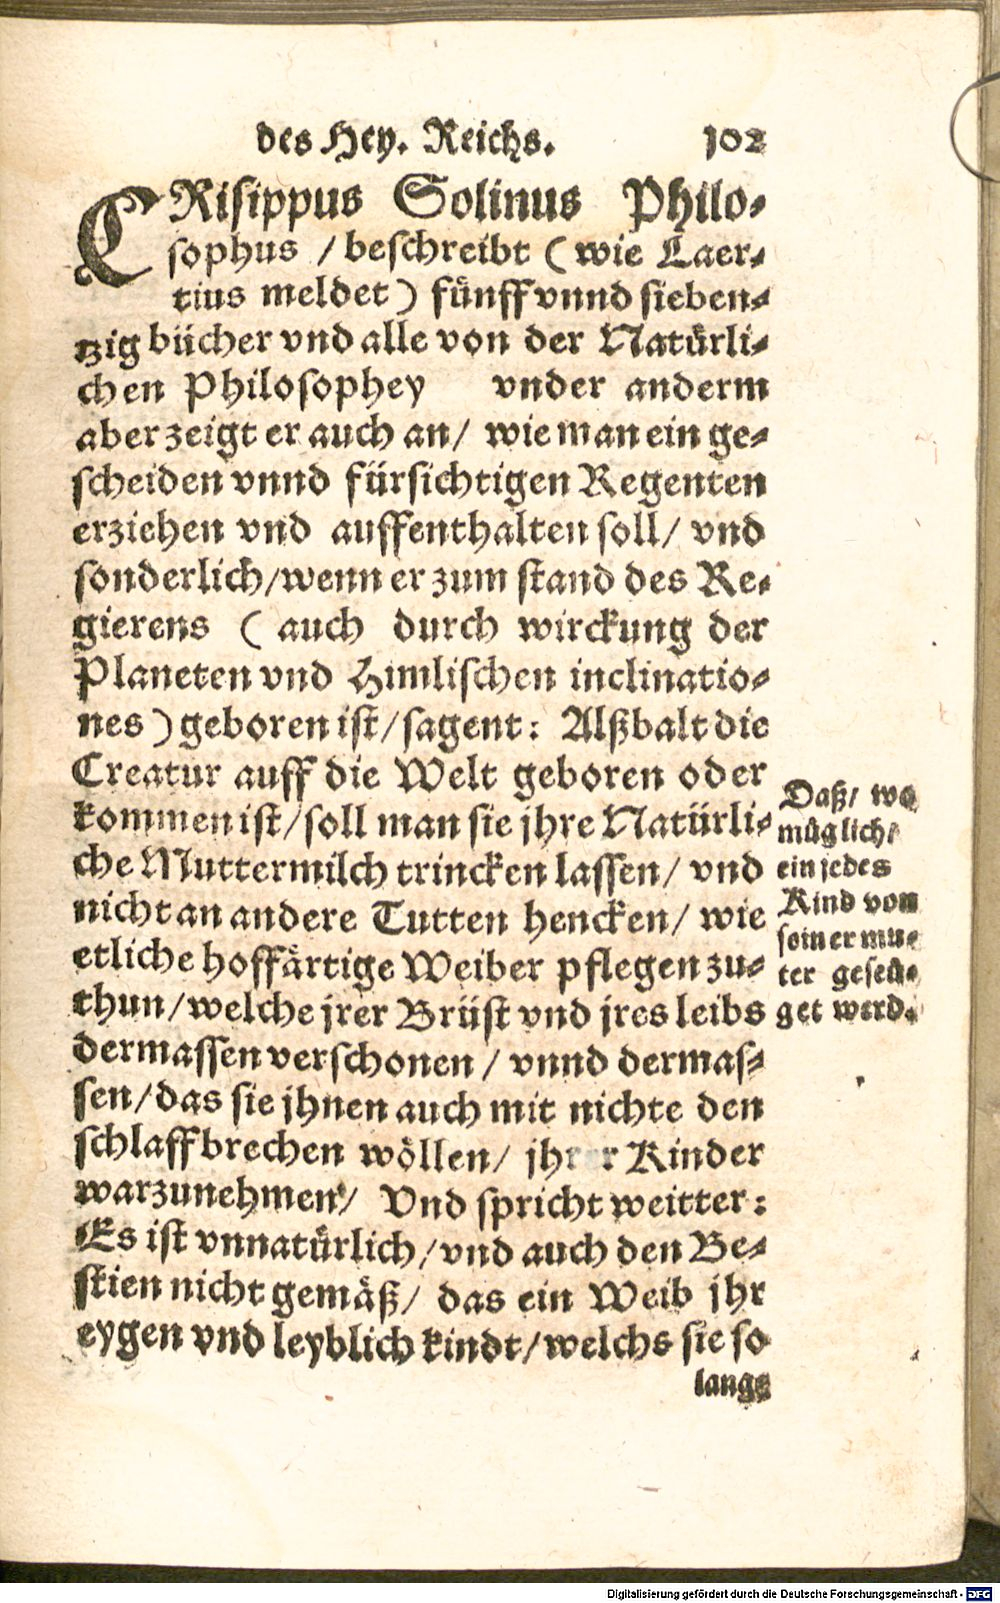 des Hey. Reichs. 102
CRisippus Solinus Philo⸗
sophus / beschreibt ( wie Laer⸗
tius meldet ) fünff vnnd sieben⸗
tzig bücher vnd alle von der Natürli⸗
chen Philosophey vnder anderm
aber zeigt er auch an / wie man ein ge⸗
scheiden vnnd fürsichtigen Regenten
erziehen vnd auffenthalten soll / vnd
sonderlich / wenn er zum stand des Re⸗
gierens ( auch durch wirckung der
Planeten vnd Himlischen inclinatio⸗
nes ) geboren ist / sagent : Alßbalt die
Creatur auff die Welt geboren oder
kommen ist / soll man sie jhre Natürli⸗
che Muttermilch trincken lassen / vnd
nicht an andere Tutten hencken / wie
etliche hoffärtige Weiber pflegen zu⸗
thun / welche jrer Brüst vnd jres leibs
dermassen verschonen / vnnd dermas⸗
sen / das sie jhnen auch mit nichte den
schlaff brechen wöllen / jhrer Kinder
warzunehmen / Vnd spricht weitter :
Es ist vnnatürlich / vnd auch den Be⸗
stien nicht gemäß / das ein Weib jhr
eygen vnd leyblich kindt / welchs sie so
lange
Daß / wo
müglich /
ein jedes
Kind von
seiner mu⸗
ter geseü⸗
get werd.
Digitalisierung gefördert durch die Deutsche Forschungsgemeinschaft - DFG